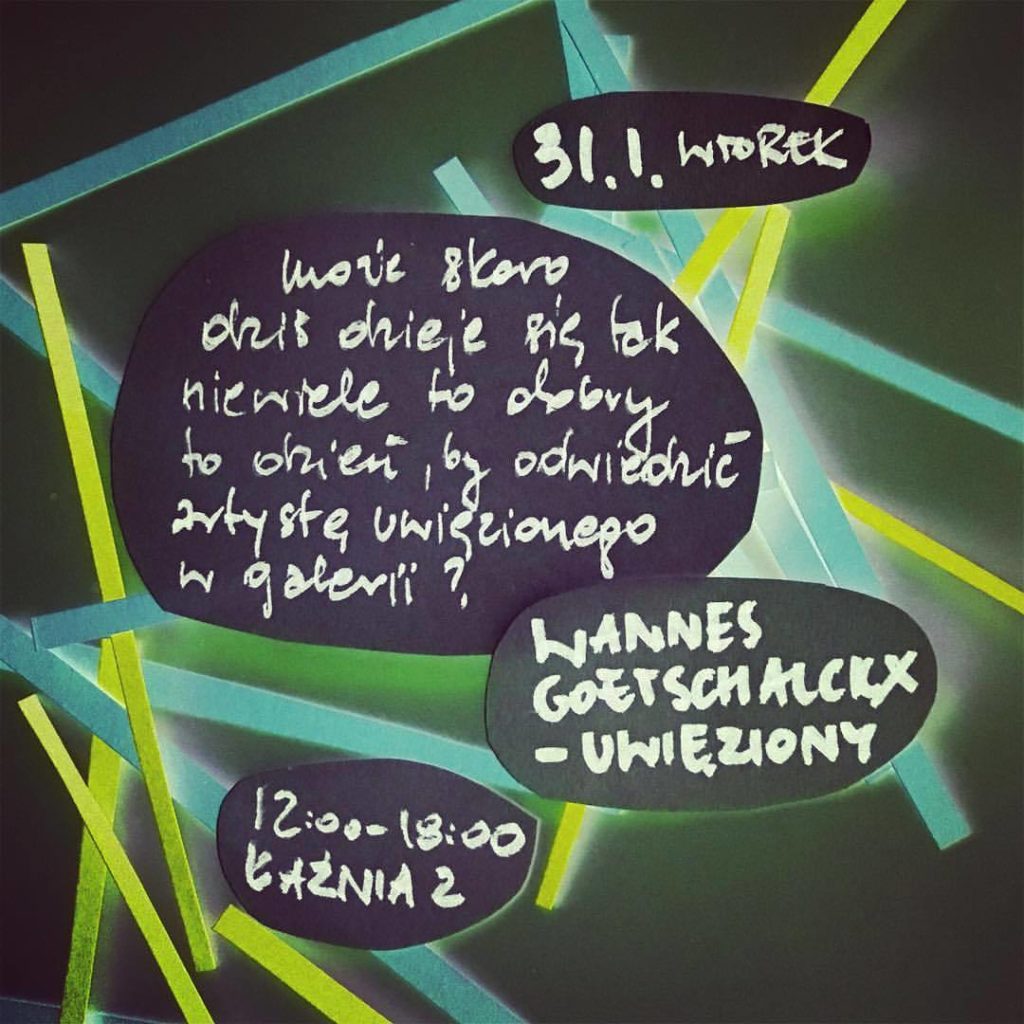 31.1. WTOREK
może skoro
dziś dzieje się tak
niewiele to dobry
to dzień, by odwiedzić
artystę uwięzionego
w galerii?
WANNES
GOETSCHALCKX
- UWIĘZIONY
12:00-18:00
ŁAŹNIA 2